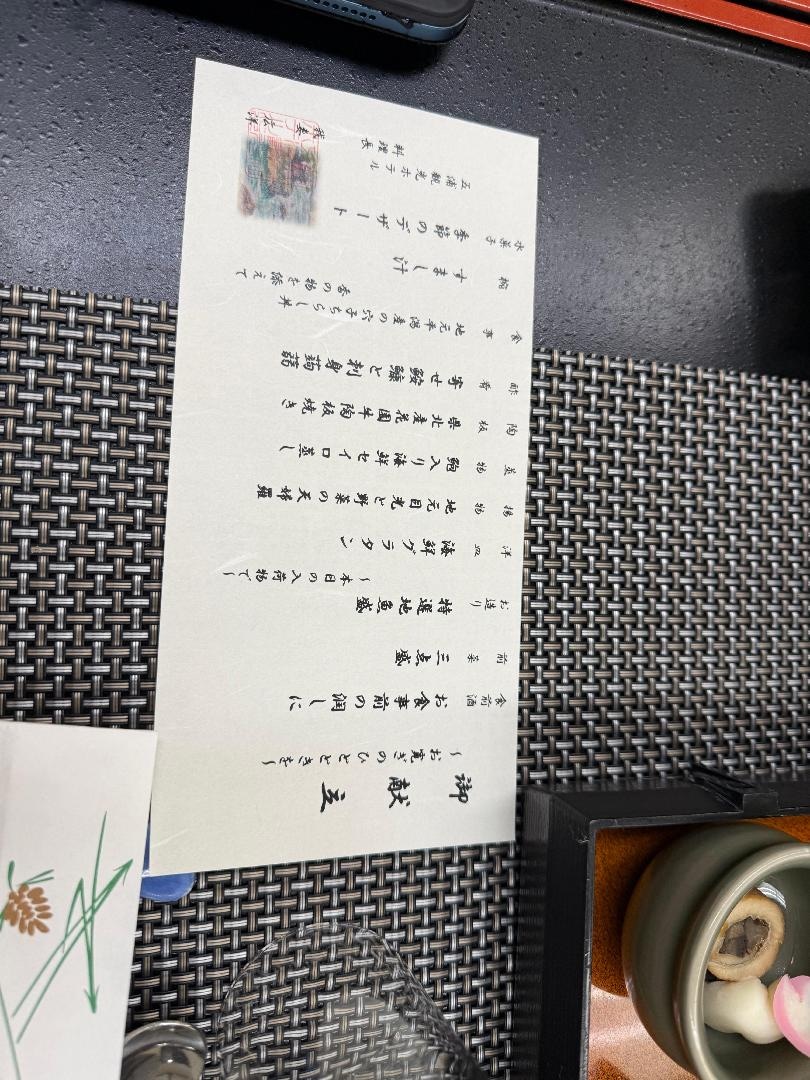 御献立
〜お寛ぎのひとときを〜
食前酒 お食事前の潤しに
前菜 三点盛
お造り 特選地魚盛
〜本日の入荷物で〜
洋皿 海鮮グラタン
揚物 地元目光と野菜の天婦羅
蒸物 鮑入り海鮮セイロ蒸し
陶板 県北産花園牛陶板焼き
酢肴 寄せ鮟鱇と刺身蒟蒻
食事 地元平潟産の穴子ちらし丼
香の物を添えて
椀 すまし汁
水菓子 季節のデザート
五浦観光ホテル
料理長 我妻